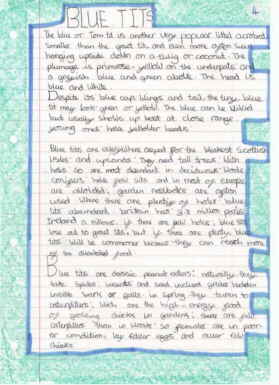 BLUE TITS
4
The blue or Tom tit is another very popular little acrobat
Smaller than the great tit and even more often seen
hanging upside down on a twig or coconut. The
plumage is primrose yellow on the underparts and
a greyish blue and green above. The head is
blue and white.
Despite its blue cap wings and tail, the tiny blue
tit may look green or yellow. The blue can be vivid
but usually shows up best at close range
young ones have paler heads
Blue tits are everywhere except for the bleakest Scottish
isles and uplands. They need tall trees with
holes so are most abundant in deciduous woods
conifers hold few tits and in most of Europe
are avoided, garden nestboxes are often
used where there are plenty of holes blue
tits abundant. britain has 3.5 million pairs
Ireland a million. if there are few holes, blue tits
lose out to great tits, but if there are plenty, blue
tits will be commoner because they can reach more
of the available food
Blue tits are classic peanut eaters: naturally they
take spiders, insects and seeds included
inside bark or galls. in spring they turn to
caterpillars, which are the high-energy food
of growing chicks in gardens, there are fewer
caterpillars than in woods so females are in poor
condition, lay fewer eggs and rear few
chicks